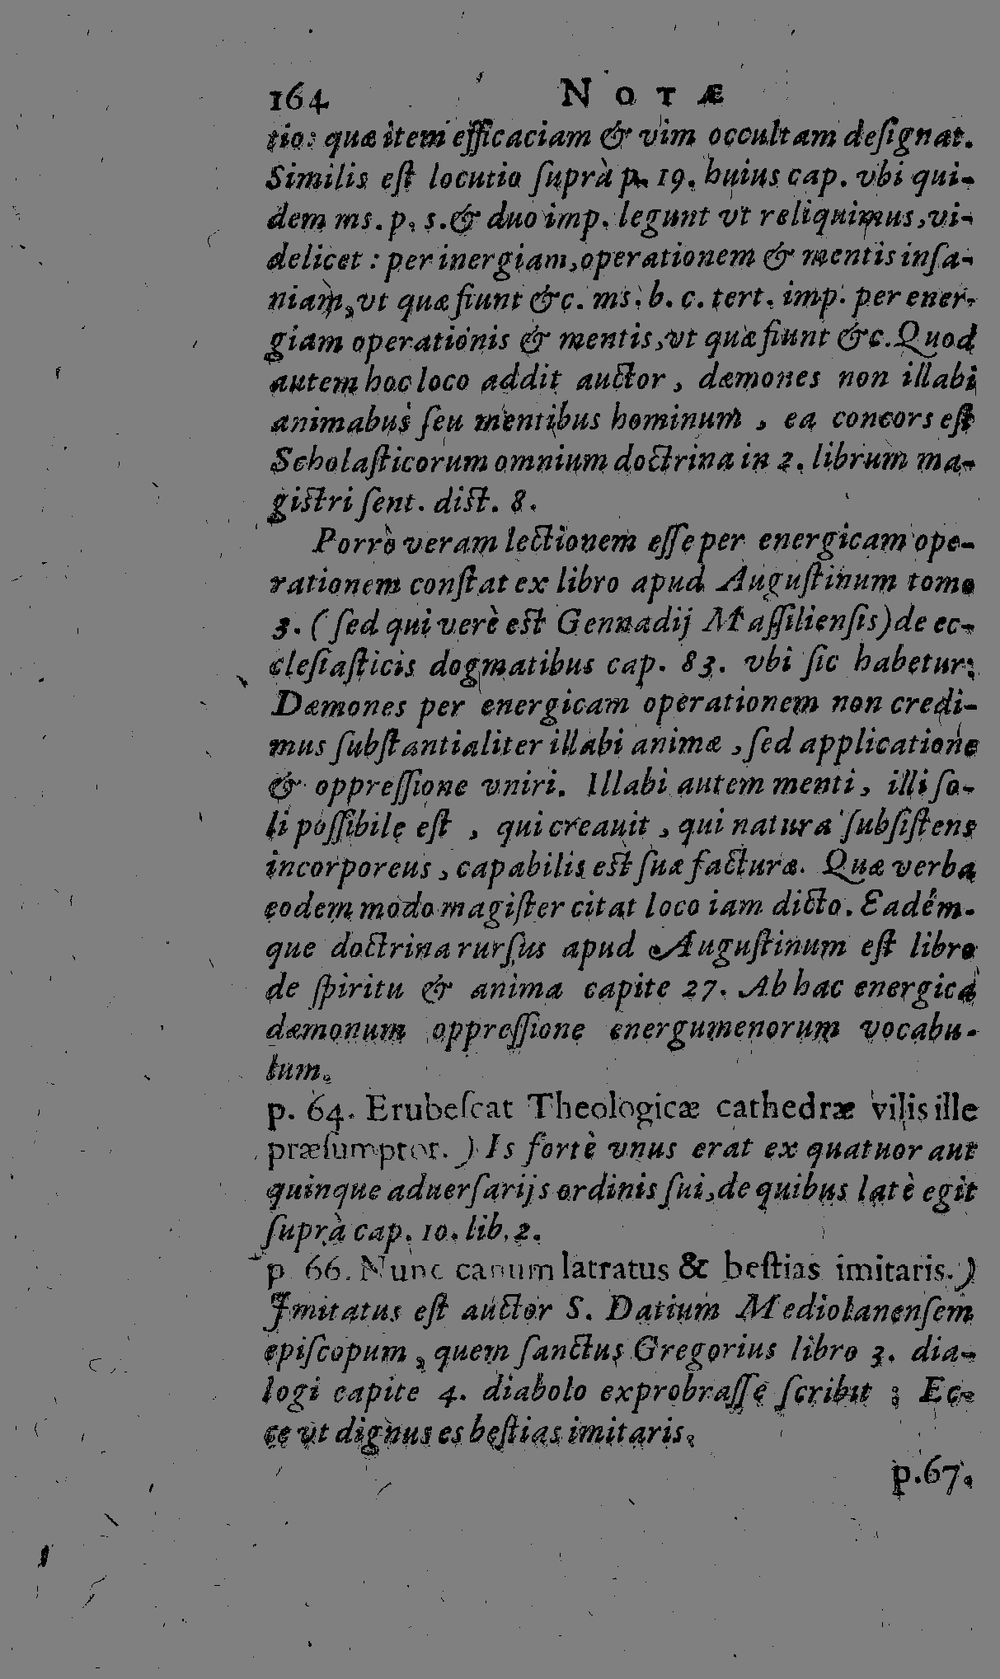 164 NOTÆ
tio: quæ item efficaciam & vim occultam deſignat.
Similis eſt locutio ſuprà p. 19. huius cap. vbi qui-
dem ms. p. s. & duo imp. legunt vt reliquimus, vi-
delicet : per inergiam, operationem & mentis inſa-
niam, vt quæ fiunt &c. ms. b. c. tert. imp. per ener-
giam operationis & mentis, vt quæ fiunt &c. Quod
autem hoc loco addit auctor, dæmones non illabi
animabus ſeu mentibus hominum, ea concors eſt
Scholaſticorum omnium doctrina in 2. librum ma-
giſtri ſent. diſt. 8.
Porrò veram lectionem eſſe per energicam ope-
rationem conſtat ex libro apud Auguſtinum tomo
3. (ſed qui verè eſt Gennadij Maſſilienſis) de ec-
cleſiaſticis dogmatibus cap. 83. vbi ſic habetur:
Dæmones per energicam operationem non credi-
mus ſubſtantialiter illabi animæ, ſed applicatione
& oppreſſione vniri. Illabi autem menti, illi ſo-
li poſſibile eſt, qui creauit, qui natura ſubſiſtens
incorporeus, capabilis eſt ſuæ facturæ. Quæ verba
eodem modo magiſter citat loco iam dicto. Eadém-
que doctrina rurſus apud Auguſtinum eſt libro
de ſpiritu & anima capite 27. Ab hac energica
dæmonum oppreſſione energumenorum vocabu-
lum.
p. 64. Erubeſcat Theologicæ cathedræ vilis ille
præſumptor. ) Is fortè vnus erat ex quatuor aut
quinque aduerſarijs ordinis ſui, de quibus latè egit
ſuprà cap. 10. lib. 2.
p 66. Nunc canum latratus & beſtias imitaris. )
Imitatus eſt auctor S. Datium Mediolanenſem
epiſcopum, quem ſanctus Gregorius libro 3. dia-
logi capite 4. diabolo exprobraſſe ſcribit ; Ec-
ce vt dignus es beſtias imitaris.
p. 67.